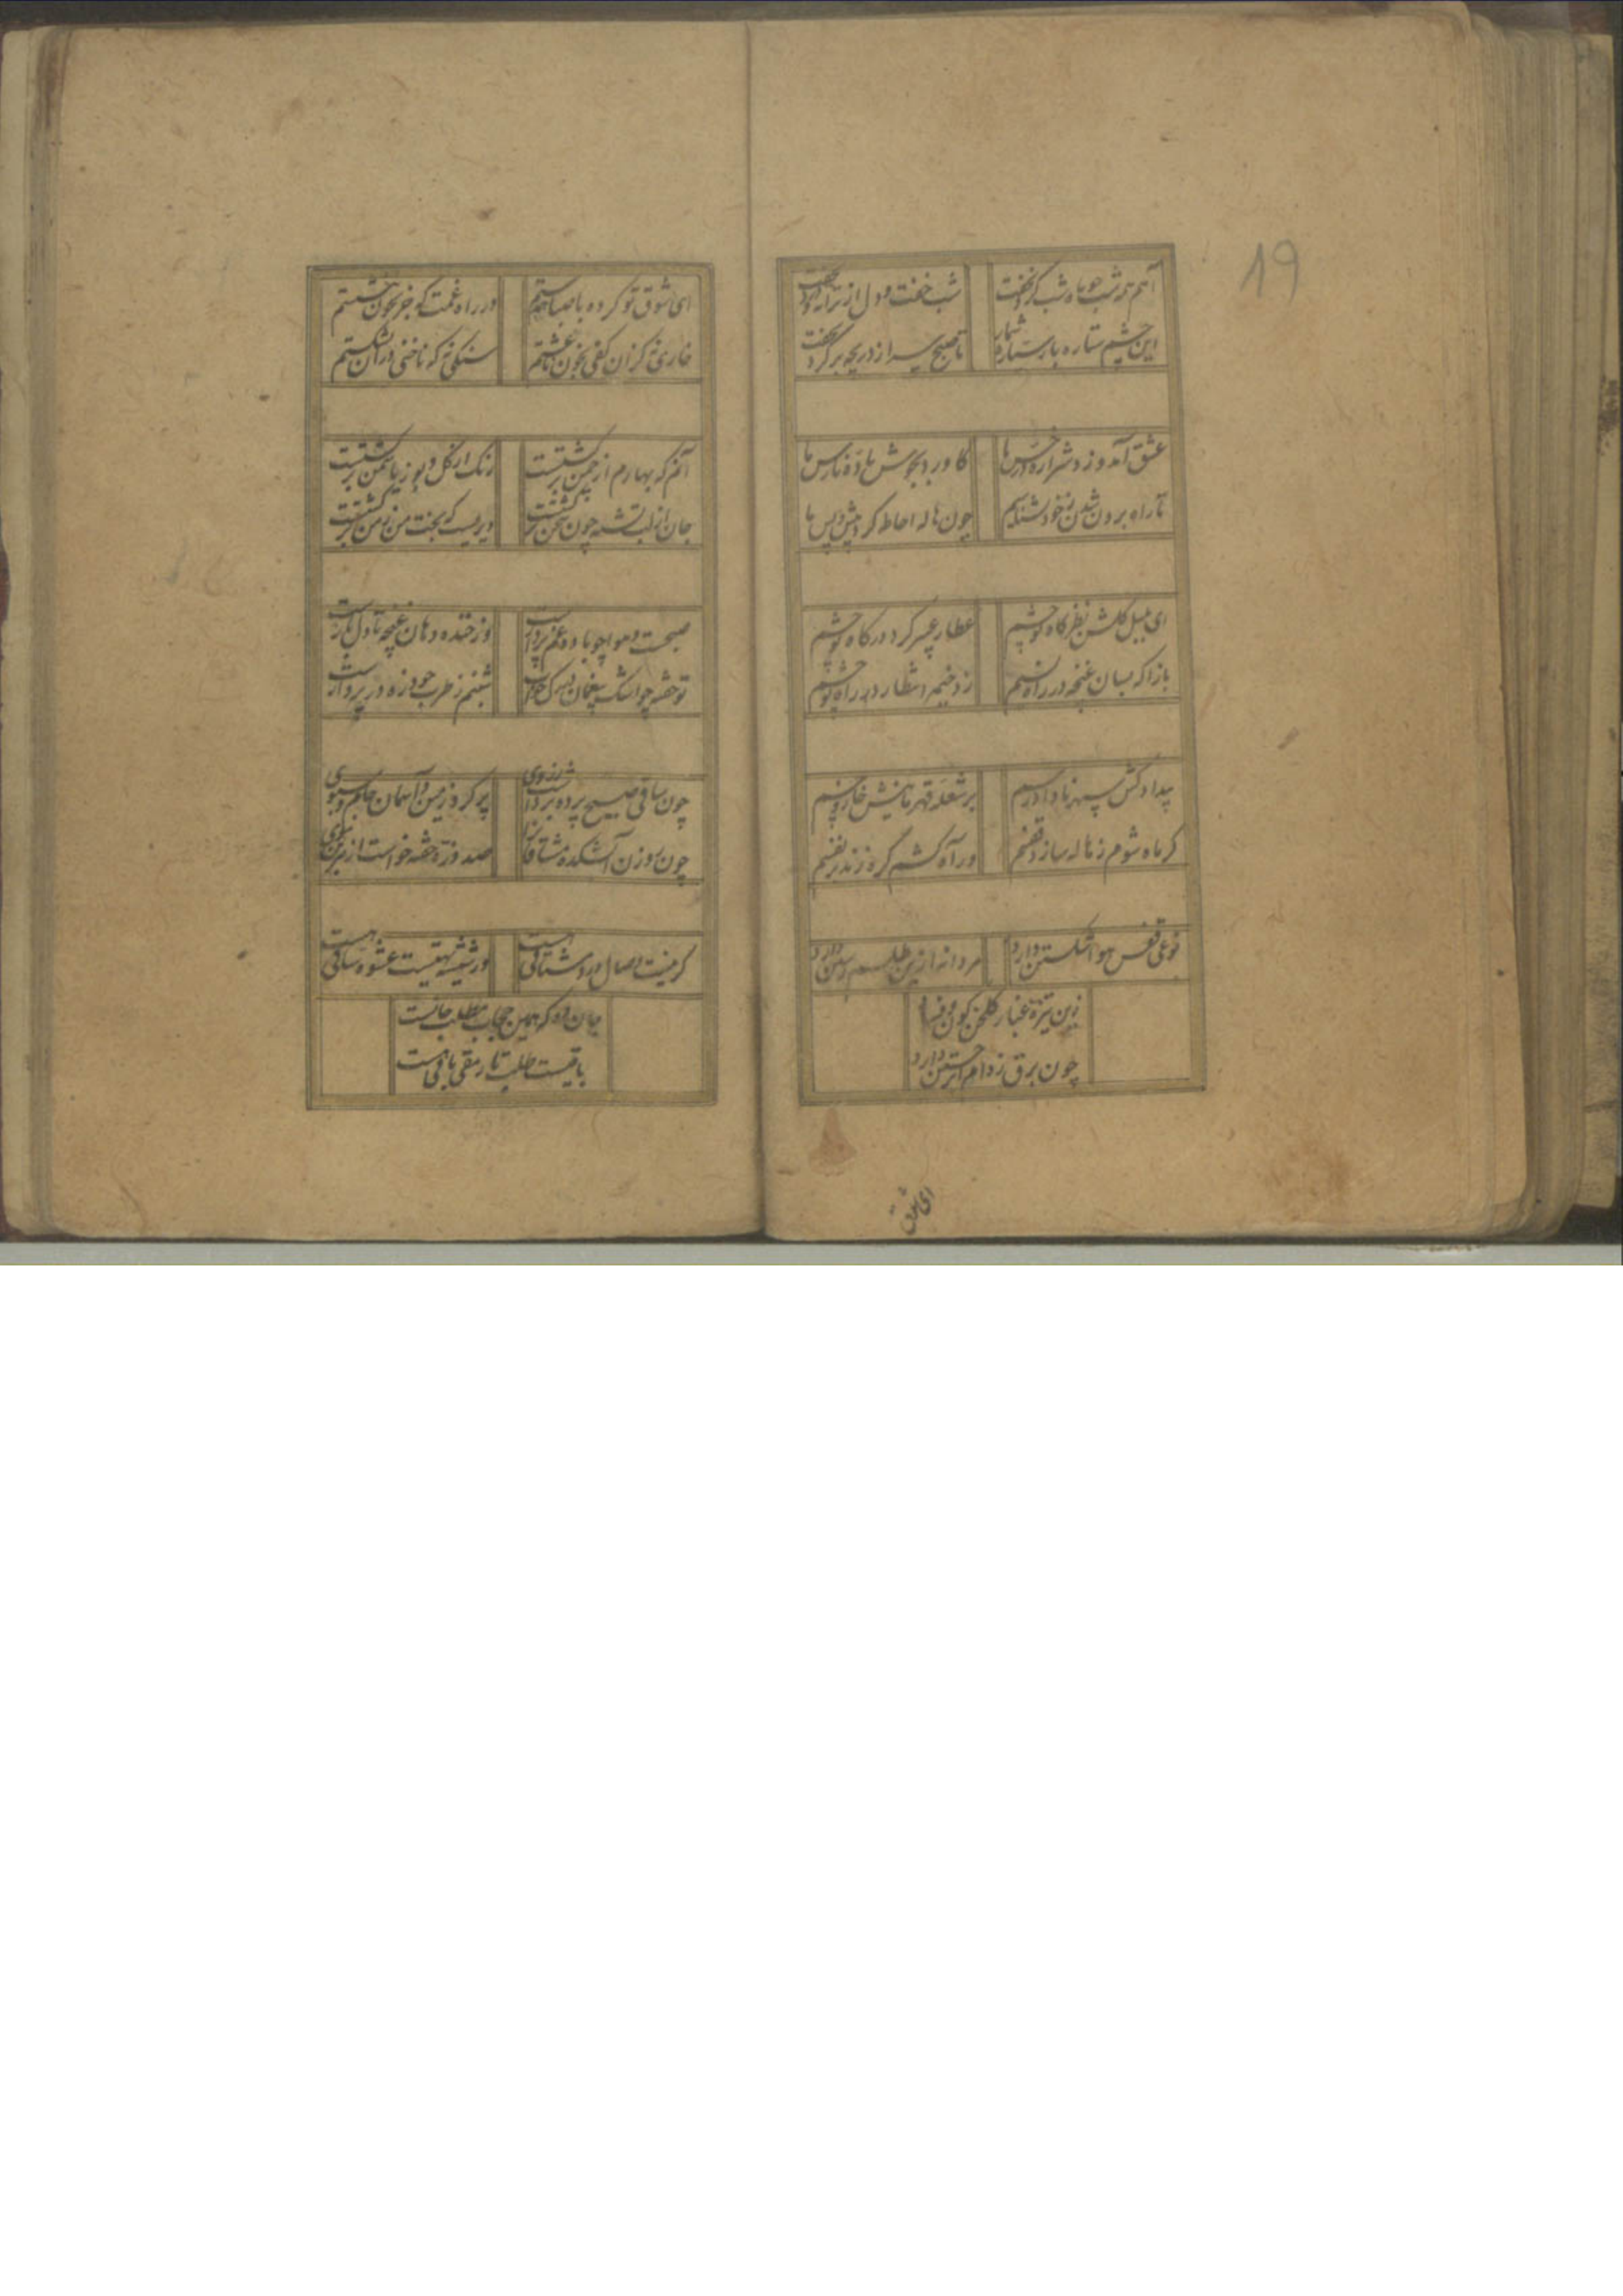 19
آهم همه شب چو ماه شب گرد نخفت
شب خفت و دل از ترانه درد نخفت
این چشم ستاره بار ستاره شمار
تا صبح سر از دریچه بر کرد نخفت
عشق آمد و زد شراره در خس ما
کاورد بجوش باده نارس ما
تا راه برون شدن ز خود نشناسیم
چون هاله احاطه کرد پیش و پس ما
ای بلبل گلشن نظر گاه تو چشم
عطار عبیر گرد درگاه تو چشم
باز آ که بسان غنچه در راه نسیم
زد خیمه انتظار در راه تو چشم
بیداد کش سپهر نا دادرسم
بر شعله قهرمانیش خار و خسم
گر ماه شوم ز هاله سازد قفسم
ور آه کشم گره زند بر نفسم
نوعی قفس هوا شکستن دارد
مردانه ازین طلسم رستن دارد
زین تیره غبار گلخن کون و فساد
چون برق ز دام جستن دارد
ای شوق
ای شوق تو کرده با صبا
در راه غمت که جز بخون
خاری نه کزان کفی بخون
سنگی نه که ناخنی در آن نشکستم
آنم که بهارم از چمن برگشتست
رنگ از گل و بو ز یاسمن برگشتست
جان از لب تشنه چون سخن برگشتست
دیریست که بخت من ز من برگشتست
صبحست و هوا چو باده غم پرداز است
وز خنده دهان غنچه تا دل باز است
شبنم ز طرب چو ذره در پرواز است
چون ساقی صبح پرده برداشت ز روی
پر کرد ز می زمین و آسمان جام و سبوی
چون روزن آتشکده مشتاقان
صد ذره خواست از هر سوی
گر نیست وصال درد مشتاقی هست
ور شیشه تهیست عشوه ساقی هست
جان ده که همین حجاب مطلب جانست
باقیست طلب تا رمقی باقی هست